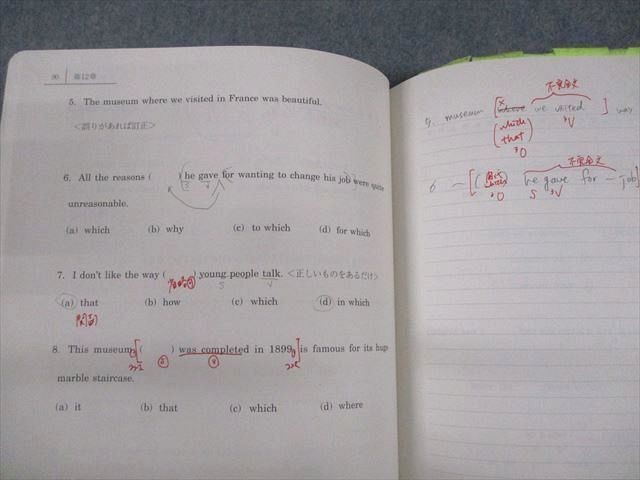 90 第12章
5. The museum where we visited in France was beautiful.
<誤りがあれば訂正>
6. All the reasons ( ) he gave for wanting to change his job were quite
S V
unreasonable.
(a) which (b) why (c) to which (d) for which
7. I don't like the way ( ) young people talk. <正しいものをあるだけ>
S V
(a) that (b) how (c) which (d) in which
8. This museum ( ) was completed in 1899 is famous for its huge
marble staircase.
(a) it (b) that (c) which (d) where
不完全文
5. museum [ where we visited ] was
which
that
V
O
不完全文
6 ~ [ ( which ) he gave for ~ job ]
O S V